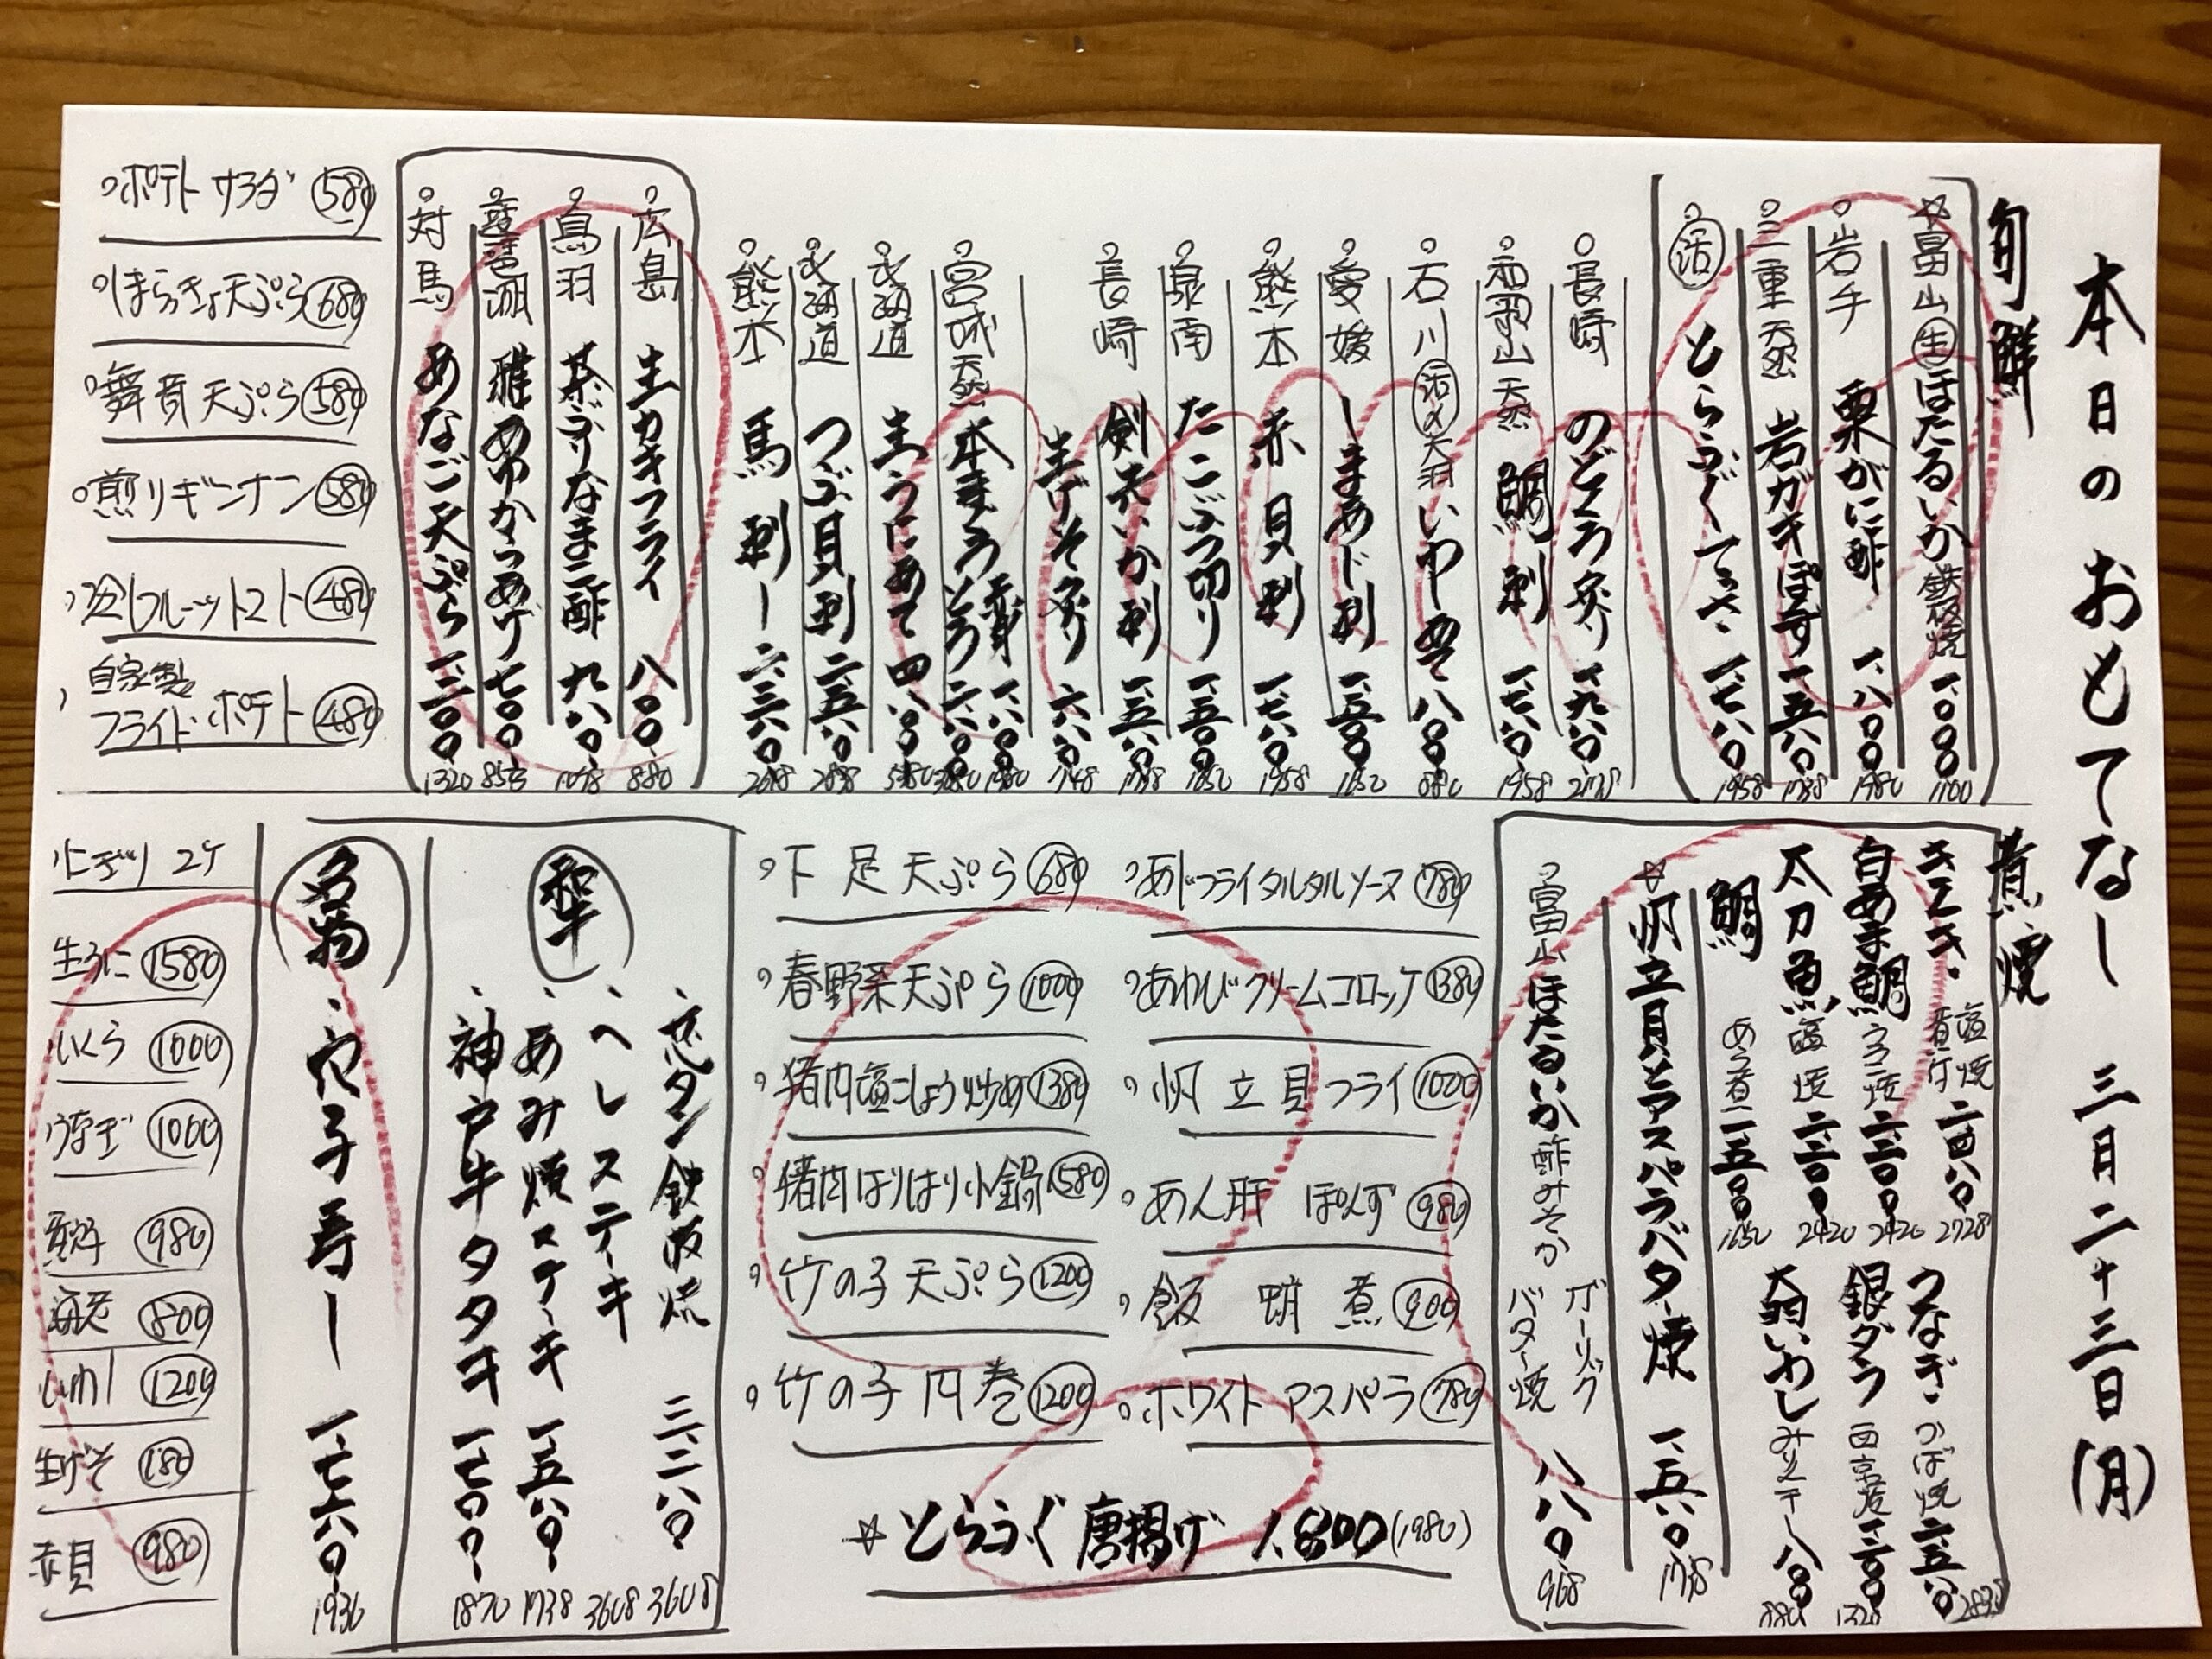 本日のおもてなし 三月二十三日(月)
旬鮮
☆富山 生 ほたるいか 鉄板焼 一、〇〇〇 1100
岩手 栗がに酢 一、八〇〇 1980
三重 天然 岩ガキぽす 一、五八〇 1738
活 とらふぐてっさ 一、七八〇 1958
長崎 のどぐろ炙り 一、九八〇 2178
和歌山 天然 鯛刺 一、七八〇 1958
石川 活〆 大羽いわし 八〇〇 880
愛媛 しまあじ刺 一、五〇〇 1650
熊本 赤貝刺 一、七八〇 1958
泉南 たこぶつ切り 一、五〇〇 1650
長崎 剣先いか刺 一、五八〇 1738
生げそ炙り 六八〇 748
宮城 天然 本まぐろ 赤身 一、八〇〇 1980
とろ 二、八〇〇 3080
北海道 生うにあて 四、八〇〇
北海道 つぶ貝刺 二、五八〇 2838
熊本 馬刺し 二、三八〇 2618
広島 生カキフライ 八〇〇 880
鳥羽 茶ぶりなまこ酢 九八〇 1078
琵琶湖 稚あゆからあげ 七八〇 858
対馬 あなご天ぷら 一、二〇〇 1320
ポテトサラダ 580
しまらっきょ天ぷら 680
舞茸天ぷら 580
煎りギンナン 580
冷しフルーツトマト 480
自家製
フライドポテト 480
煮焼
きんき 塩焼 煮付 二、四八〇 2728
白あま鯛 うろこ焼 二、二〇〇 2420
太刀魚 塩焼 二、二〇〇 2420
鯛 あら煮 一、五〇〇 1650
うなぎ かば焼 二、五八〇 2838
銀ダラ 西京焼 一、二〇〇 1320
大羽いわし みりん干し 八〇〇 880
☆帆立貝とアスパラバター焼 一、五八〇 1738
富山 ほたるいか 酢みそか ガーリックバター焼 八八〇 968
あじフライタルタルソース 780
あわびクリームコロッケ 1380
帆立貝フライ 1000
あん肝 ぽんず 980
飯蛸煮 900
ホワイトアスパラ 780
下足天ぷら 680
春野菜天ぷら 1000
猪肉塩こしょう炒め 1380
猪肉はりはり小鍋 1580
竹の子天ぷら 1200
竹の子肉巻 1200
☆とらふぐ唐揚げ 1,800 (1980)
和牛
芯タン鉄板焼 三、二八〇 3608
ヘレステーキ 3608
あみ焼ステーキ 一、五八〇 1738
神戸牛タタキ 一、七〇〇 1870
名物
穴子寿し 一、七六〇 1936
にぎり 2ケ
生うに 1580
いくら 1000
うなぎ 1000
980
海老 800
いわし 1200
生げそ 180
赤貝 980